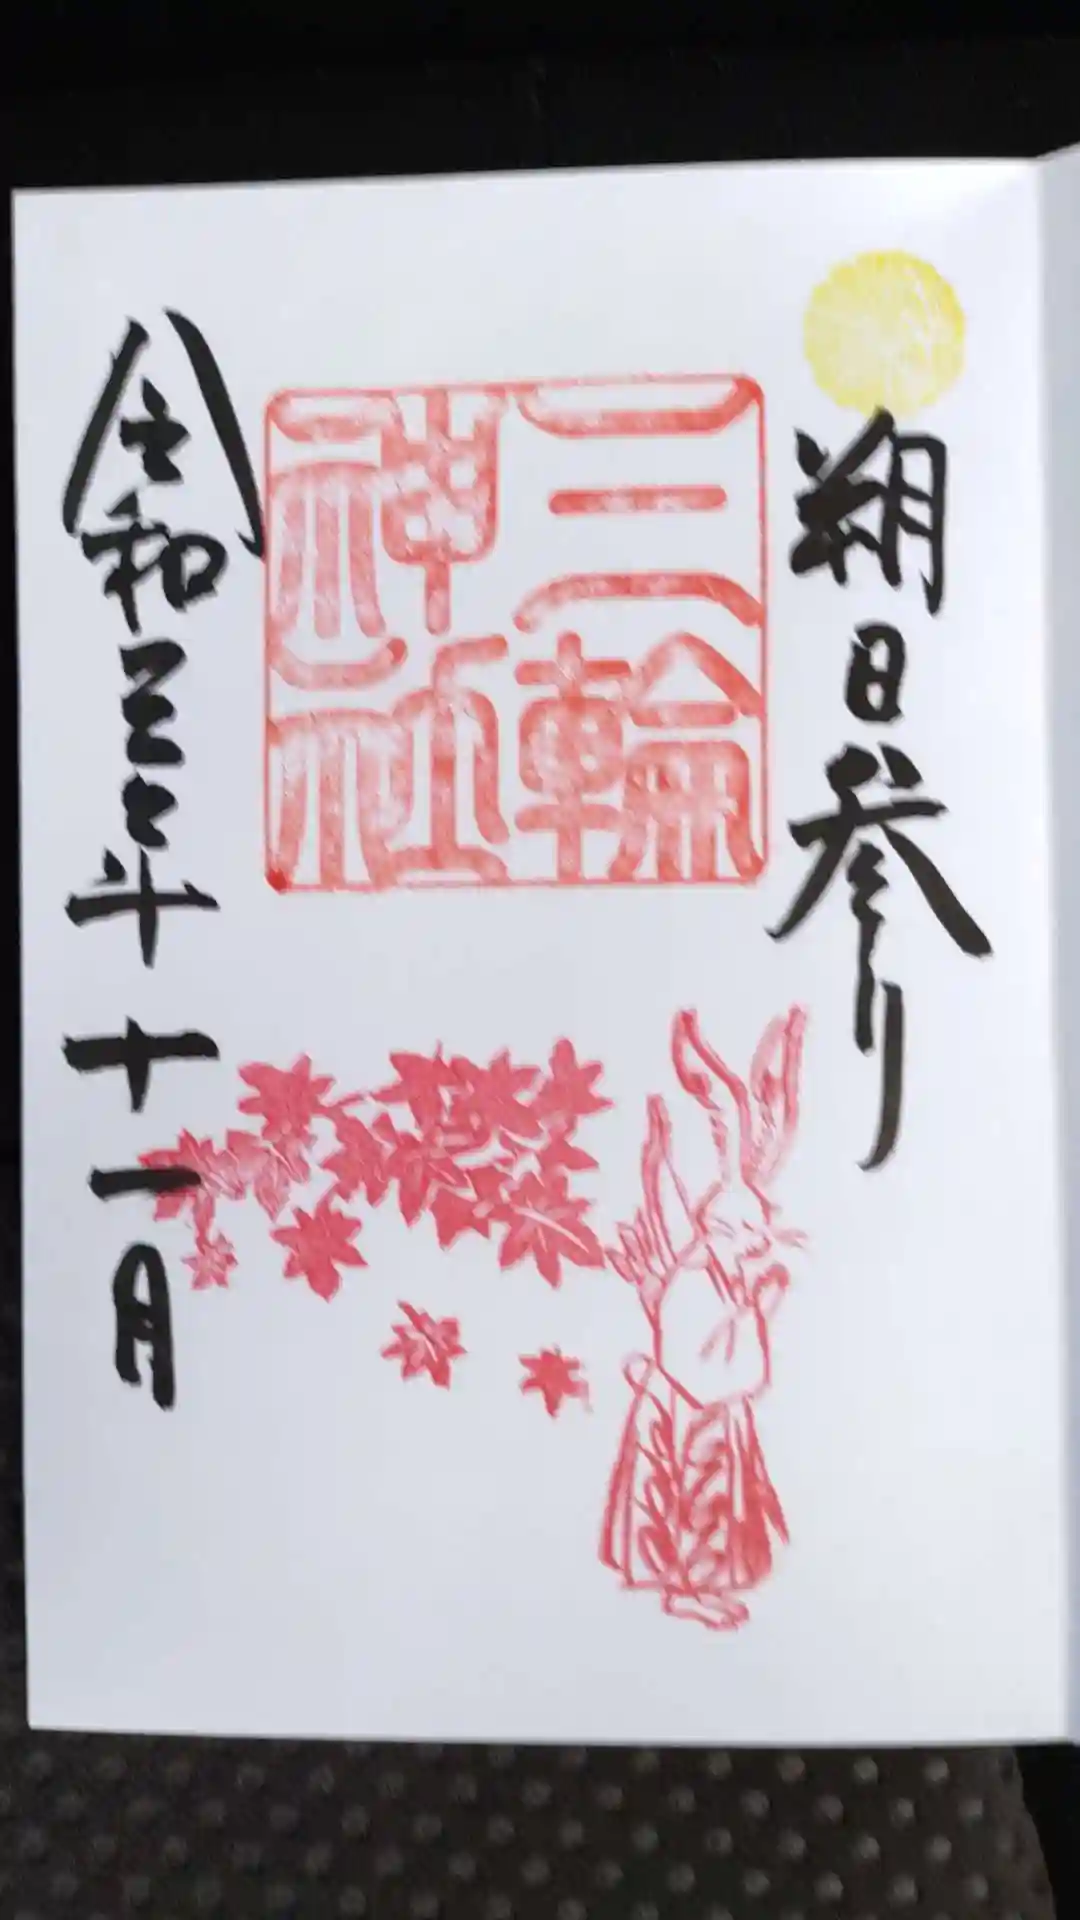 朔日参り
三輪
神社
令和三年十一月